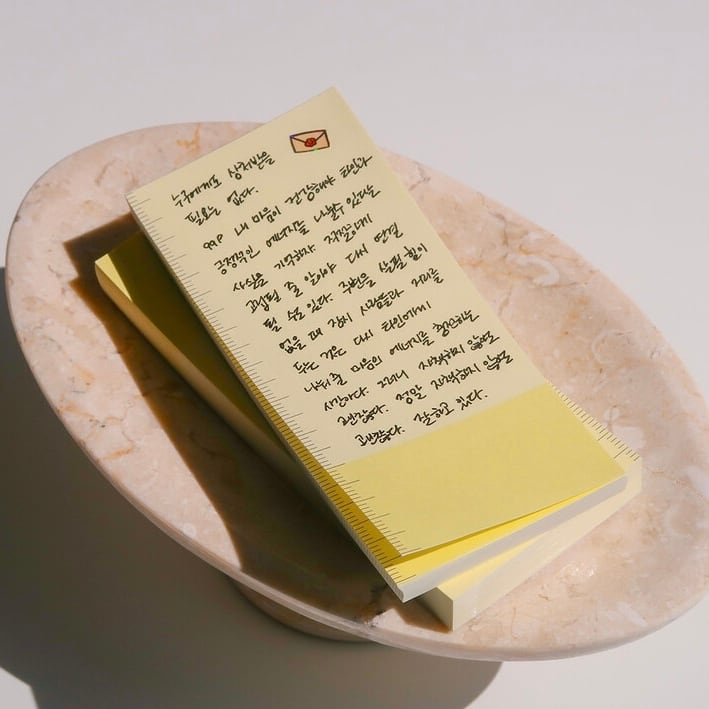 누구에게도 상처받을
필요는 없다.
99P 내 마음이 건강해야 타인과
긍정적인 에너지를 나눌 수 있다는
사실을 기억하자. 적절하게
고립될 줄 알아야 다시 연결
될 수도 있다. 주변을 살필 힘이
없을 때 잠시 사람들과 거리를
두는 것은 다시 타인에게
나눠줄 마음의 에너지를 충전하는
시간이다. 그러니 자책하지 않아도
괜찮다. 정말 자책하지 않아도
괜찮다. 잘하고 있다.